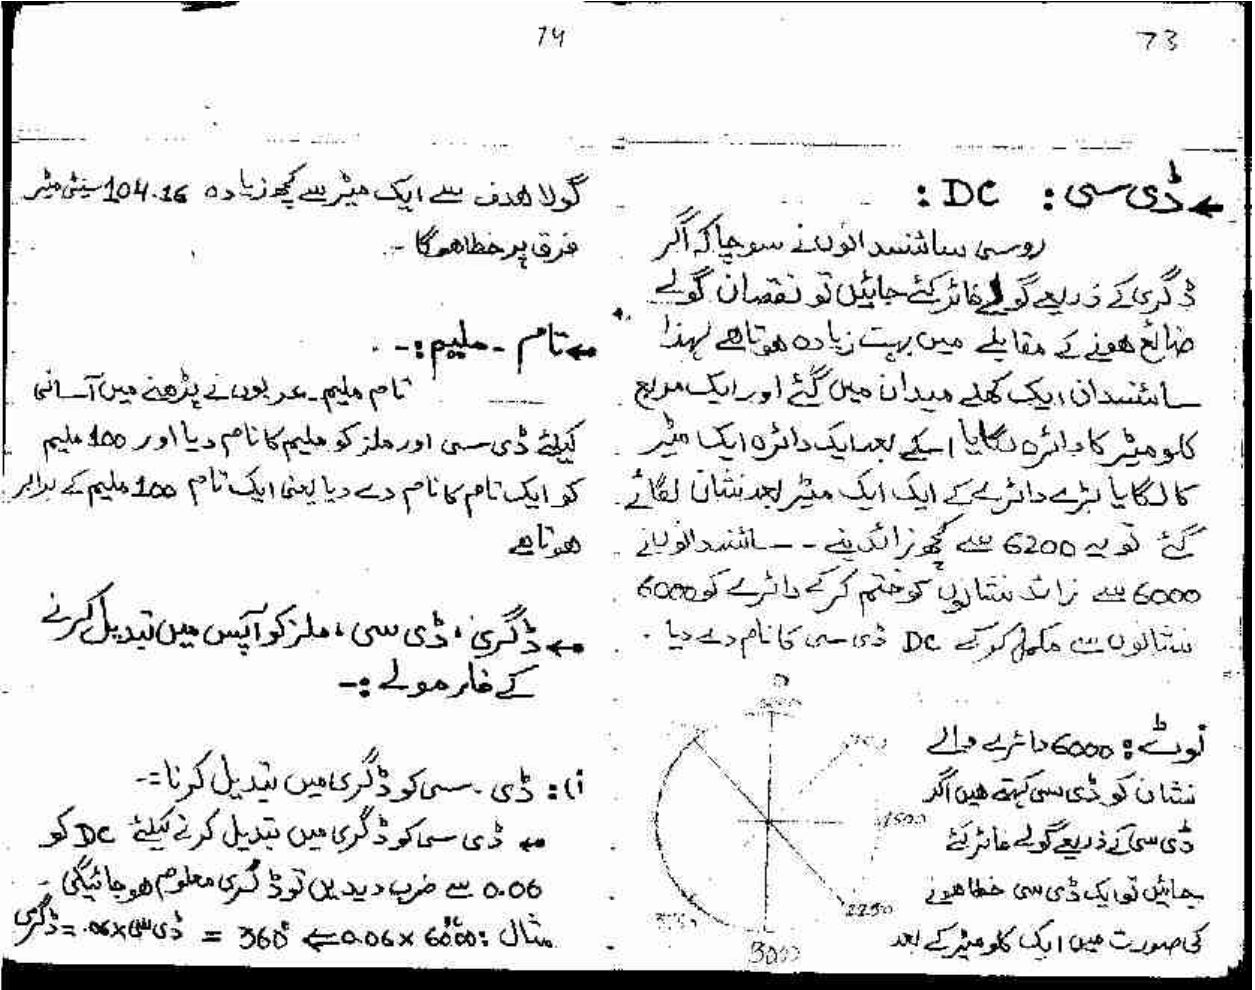 73
← ڈی سی : DC :
روسی سائنسدانوں نے سوچا کہ اگر
ڈگری کے ذریعے گولے فائر کئے جائیں تو نقصان گولے
ضائع ہونے کے مقابلے میں بہت زیادہ ہوتا ہے لہذا
سائنسدان ایک کھلے میدان میں گئے اور ایک مربع
کلو میٹر کا دائرہ لگایا اسکے بعد ایک دائرہ ایک میٹر
کا لگایا بڑے دائرے کے ایک ایک میٹر بعد نشان لگائے
گئے تو یہ 6200 سے کچھ زائد بنے -- سائنسدانوں نے
6000 سے زائد نشانوں کو ختم کر کے دائرے کو 6000
نشانوں سے مکمل کر کے DC ڈی سی کا نام دے دیا .
نوٹ : 6000 دائرے والے
نشان کو ڈی سی کہتے ہیں اگر
ڈی سی کے ذریعے گولے فائر کئے
جائیں تو ایک ڈی سی خطا ہونے
کی صورت میں ایک کلو میٹر کے بعد
0
1500
2250
3000
74
گولا ہدف سے ایک میٹر سے کچھ زیادہ 104.16 سینٹی میٹر
فرق پر خطا ہوگا -
← تام - ملیم :-
تام ملیم - عربوں نے پڑھنے میں آسانی
کیلئے ڈی سی اور ملز کو ملیم کا نام دیا اور 100 ملیم
کو ایک تام کا نام دے دیا یعنی ایک تام 100 ملیم کے برابر
ہوتا ہے
← ڈگری ، ڈی سی ، ملز کو آپس میں تبدیل کرنے
کے فارمولے :-
(i : ڈی - سی کو ڈگری میں تبدیل کرنا :-
← ڈی سی کو ڈگری میں تبدیل کرنے کیلئے DC کو
0.06 سے ضرب دیدیں تو ڈگری معلوم ہو جائیگی -
مثال : 6000 × 0.06 ⇐ 360° = ڈی سی × .06 = ڈگری